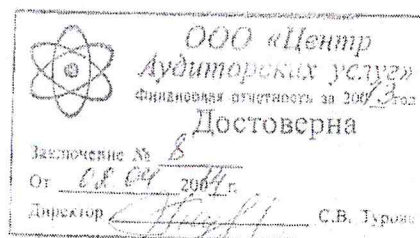 ООО «Центр
Аудиторских услуг»
Финансовая отчетность за 2013 год
Достоверна
Заключение № 8
От 08 04 2014 г.
Директор С.В.